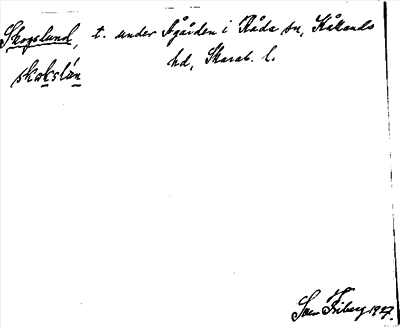 Skogslund, t. under Ågården i Råda sn, Kållands
skokslún hd, Skarab. l.
Sven Friberg 1927.